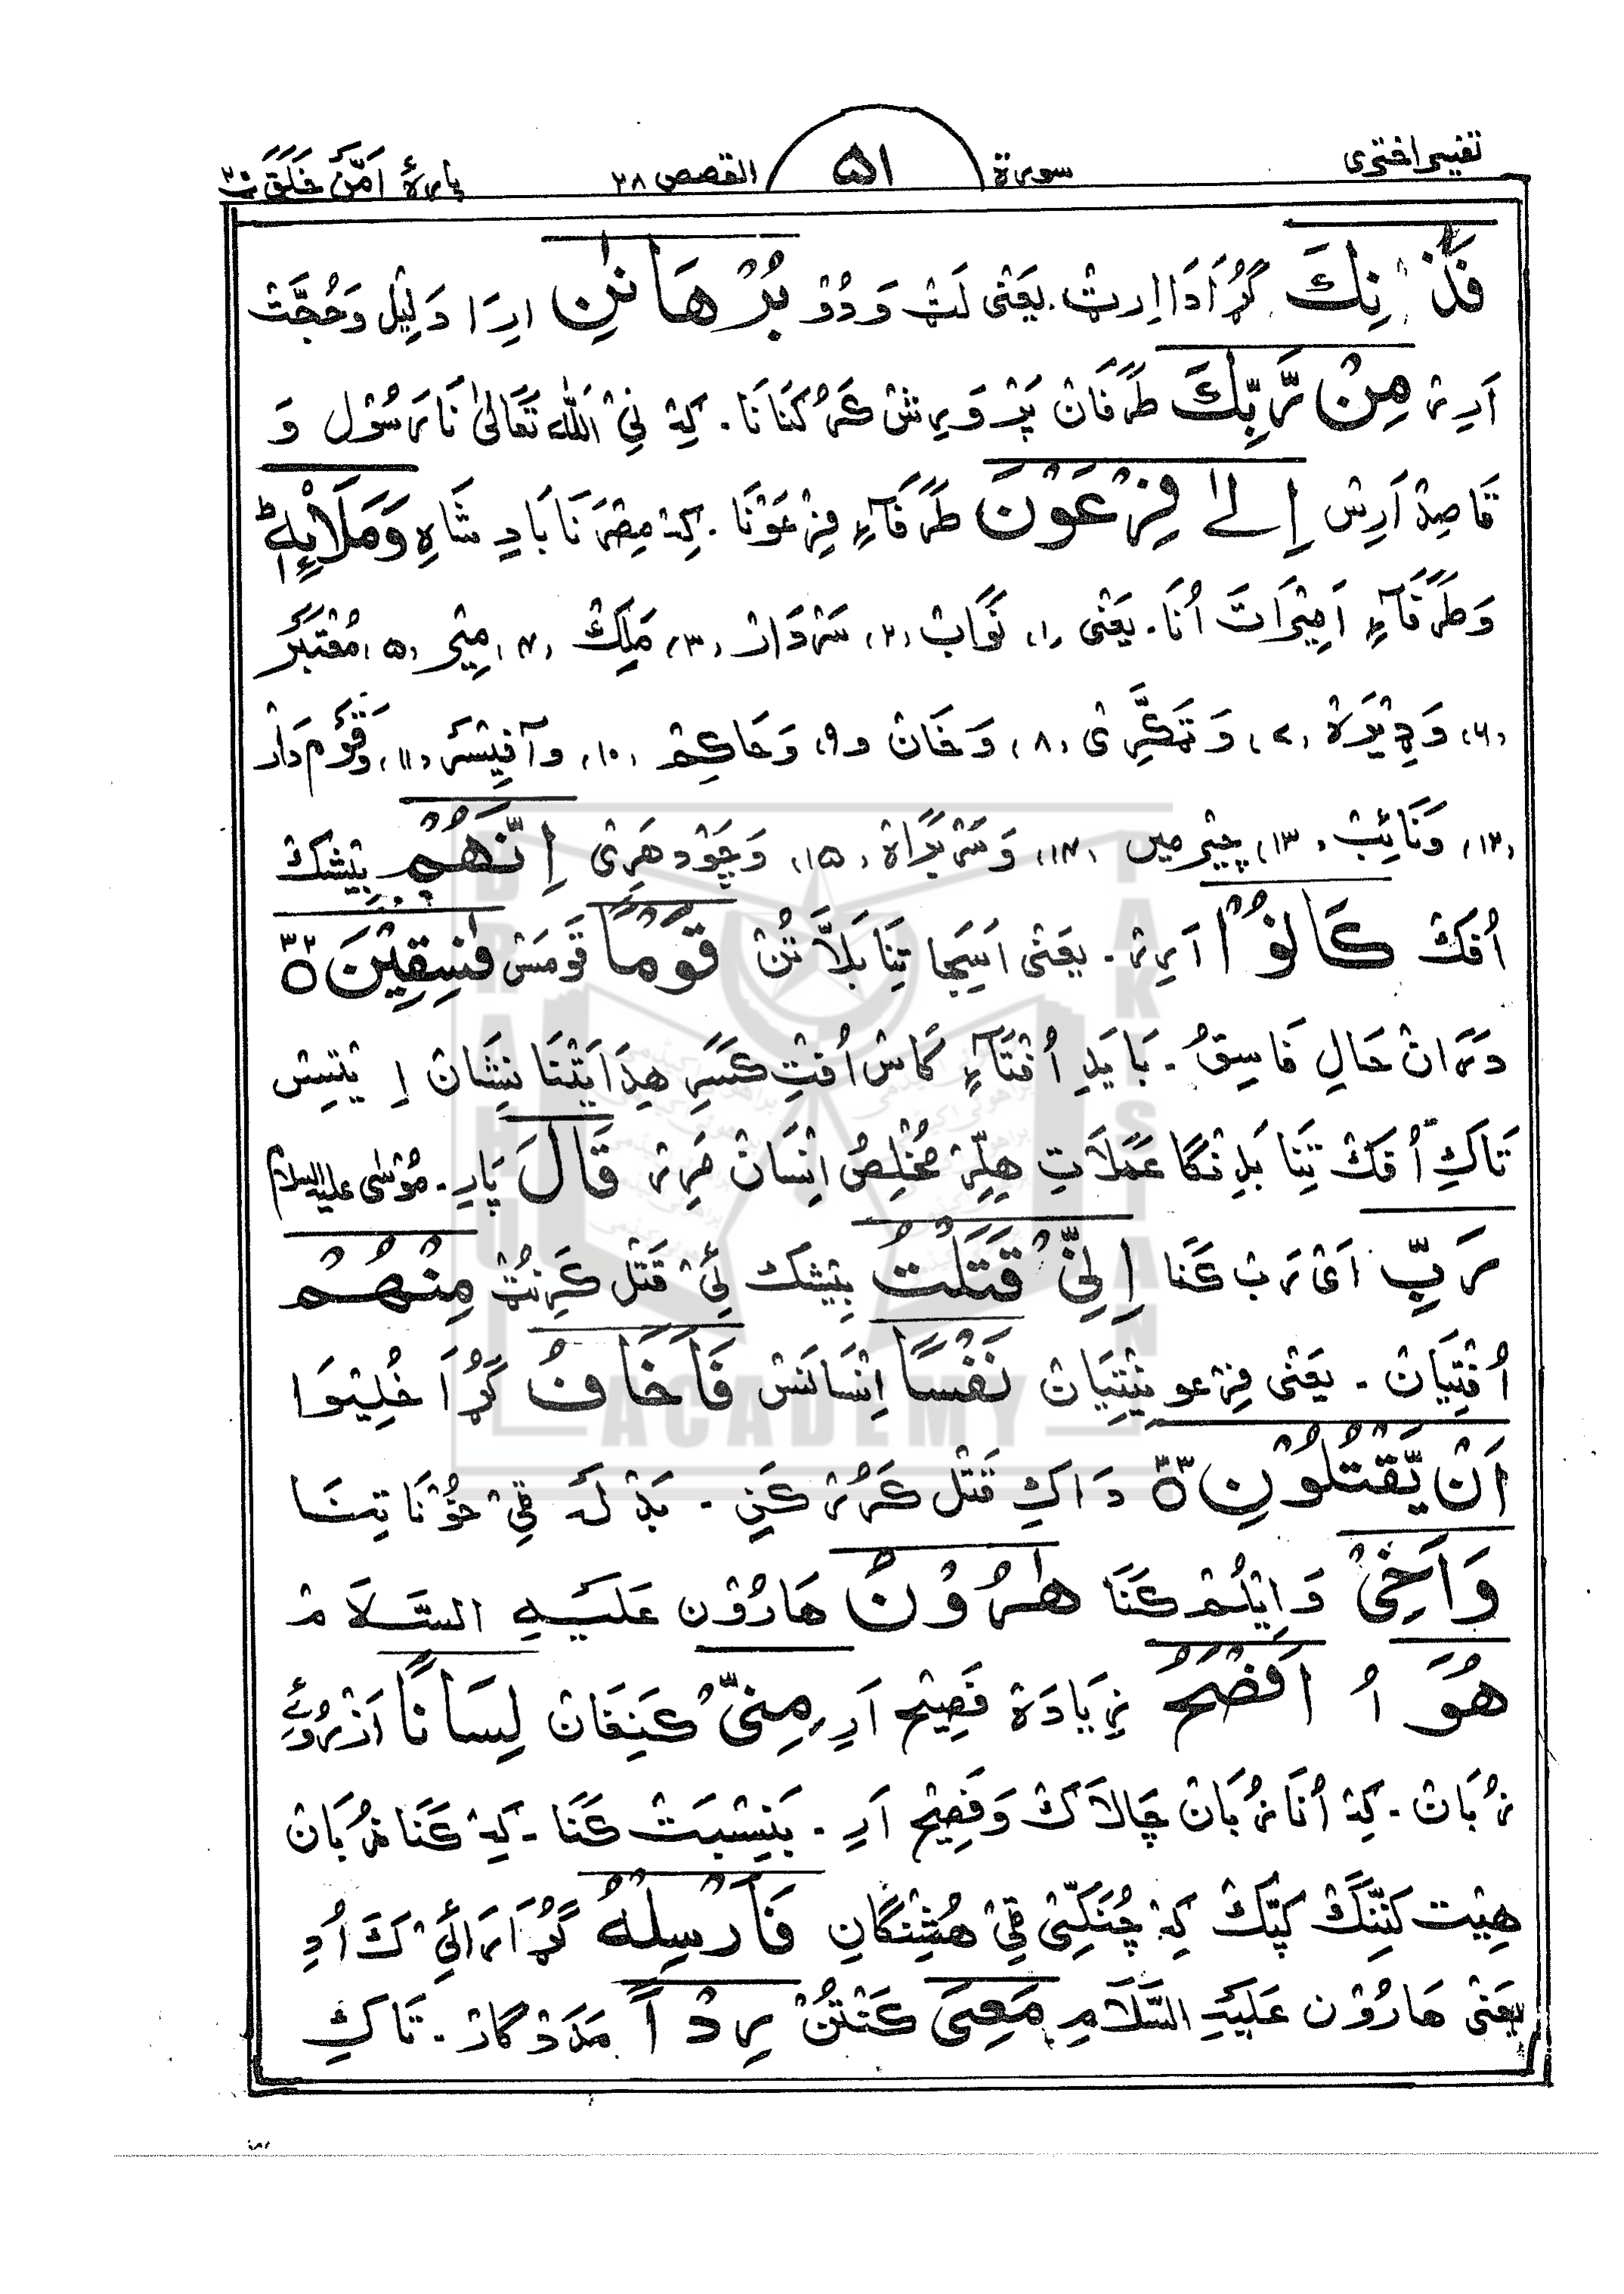 تفسیر اختری سورة ۵۱ القصص ۲۸ پارهٔ اَمَّنْ خَلَقَ ۲۰
فَذٰنِكَ گُڑا دَا اِرٹ. یَعْنٰی لَٹ وَ دُوْ بُرْهَانٰنِ اِرَا دَلِیْل وَ حُجَّتْ
اَرِرْ مِنْ رَّبِّكَ طَرَفَانْ پَرْوَرِشْ كَرُكَنَا نَا. كِہْ نِیْ اَللّٰه تَعَالیٰ نَا رَسُوْل وَ
قَاصِدْ اَرِسْ اِلٰى فِرْعَوْنَ طَرَفَآءِ فِرْعَوْنَا. كِہْ مِصْرَنَا بَادِ شَاهِ وَمَلَا۟ئِهٖ ؕ
وَ طَرَفَآءِ اَمِیْرَاتَ اُنَا. یَعْنٰی (۱) نَوَّابْ (۲) سَرْدَارْ (۳) مَلِكْ (۴) مِیْر (۵) مُعْتَبَرْ
(۶) وَڈِیْرَہْ (۷) وَ ٹَكَّرِیْ (۸) وَ خَانْ (۹) وَ حَاكِمْ (۱۰) وَ آفِیْسَرْ (۱۱) وَ قَوْم دَارْ
(۱۲) وَ نَائِبْ (۱۳) چیئرمین (۱۴) وَ سَرْبَرَاہْ (۱۵) وَ چَوْدهَرِیْ اِنَّهُمْ بِیْشَكْ
اُفَكْ كَانُوْا اَرِرْ. یَعْنٰی اَسِیجا تِنَا بَلَّا تُنْ قَوْمًا قَوْمَسْ فٰسِقِیْنَ ۝ ۳۲
دَرَانْ حَالِ فَاسِقُ. بَایَدِ اُفْتَآءِ كَاسْ اُفْتِ كَسَرِ هِدَایَتْنَا نِشَانْ اِیْتِسْ
تَاكِ اُفَكْ تِنَا بَدْنَگَا عَمَلَاتِ هِلِّرْ مُخْلِصُ اِنْسَانْ مَرِرْ قَالَ پَارِ. مُوْسٰی علیہ السلام
رَبِّ اَیْ رَبْ كَنَا اِنِّیْ قَتَلْتُ بِیْشَكْ اِیْ قَتْل كَرِنُٹْ مِنْهُمْ
اُفْتِیَانْ. یَعْنٰی فِرْعو نِیْتِیَانْ نَفْسًا اِنْسَانَسْ فَاَخَافُ گُڑَا خُلِیْوَا
اَنْ یَّقْتُلُوْنِ ۝ ۳۳ دَاكِ قَتْل كَرُرْ كَنِ. بَدْلَہ قِیْ خُوْنَا تِنَا
وَ اَخِیْ وَ اِیْلُمْ كَنَا هٰرُوْنُ هَارُوْن عَلَیْهِ السَّلَامْ
هُوَ اُ اَفْصَحُ زِیَادَہْ فَصِیْح اَرِ مِنِّیْ كَنِقَانْ لِسَانًا اَزْرُوْئے
زُبَانْ. كِہْ اُنَا زُبَانْ چَالَاكْ وَ فَصِیْح اَرِ. بَنِسْبَتْ كَنَا. كِہْ كَنَا زُبَانْ
هِیْت كَنِّنْگْ كَپَّكْ كِہْ چُنَكِّیْ قِیْ هُشِنْگَانِ فَاَرْسِلْهُ گُڑَا رَائِیْ كَ اُدِ
یَعْنٰی هَارُوْن عَلَیْهِ السَّلَامِ مَعِیَ كَنْتُنْ رِدْاً مَدَدْگَارْ. تَاكِ